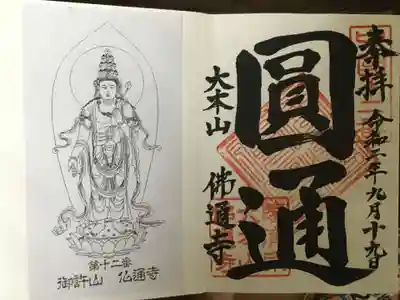 奉拝 令和二年九月十九日
圓通
大本山 佛通寺
第十二番
御許山 仏通寺